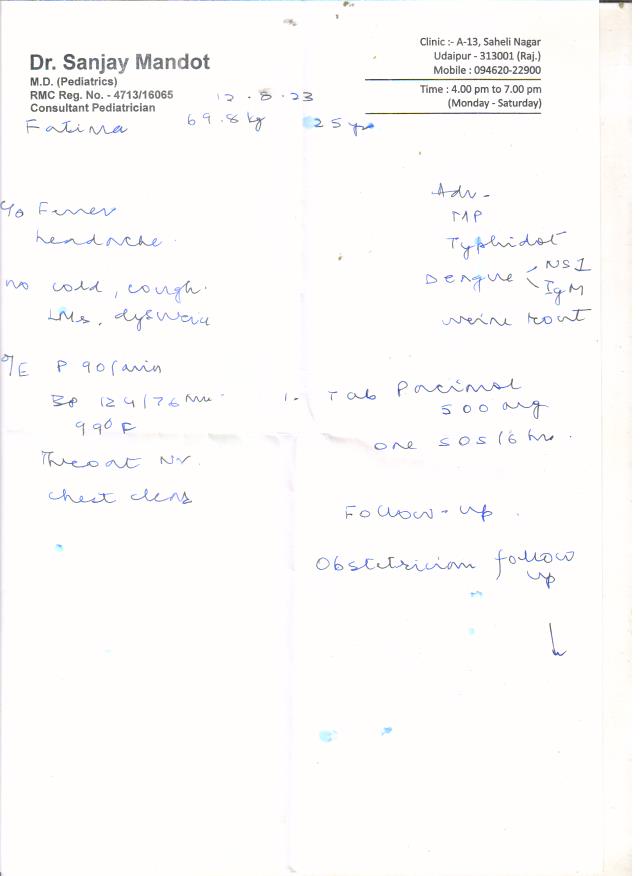 Dr. Sanjay Mandot
M.D. (Pediatrics)
RMC Reg. No. - 4713/16065
Consultant Pediatrician
Clinic :- A-13, Saheli Nagar
Udaipur - 313001 (Raj.)
Mobile : 094620-22900
Time : 4.00 pm to 7.00 pm
(Monday - Saturday)
12.8.23
Fatima 69.8 kg 25 yr
c/o Fever
headache.
no cold, cough.
LMs, dysuria
O/E P 90/min
BP 124/76 mm
99° F
Throat
chest clear
Adv -
MP
Typhidot
Dengue NS1
IgM
urine rout
1. Tab Pacimol
500 mg
one SOS/6 hr.
Follow-up.
Obstetrician follow
up